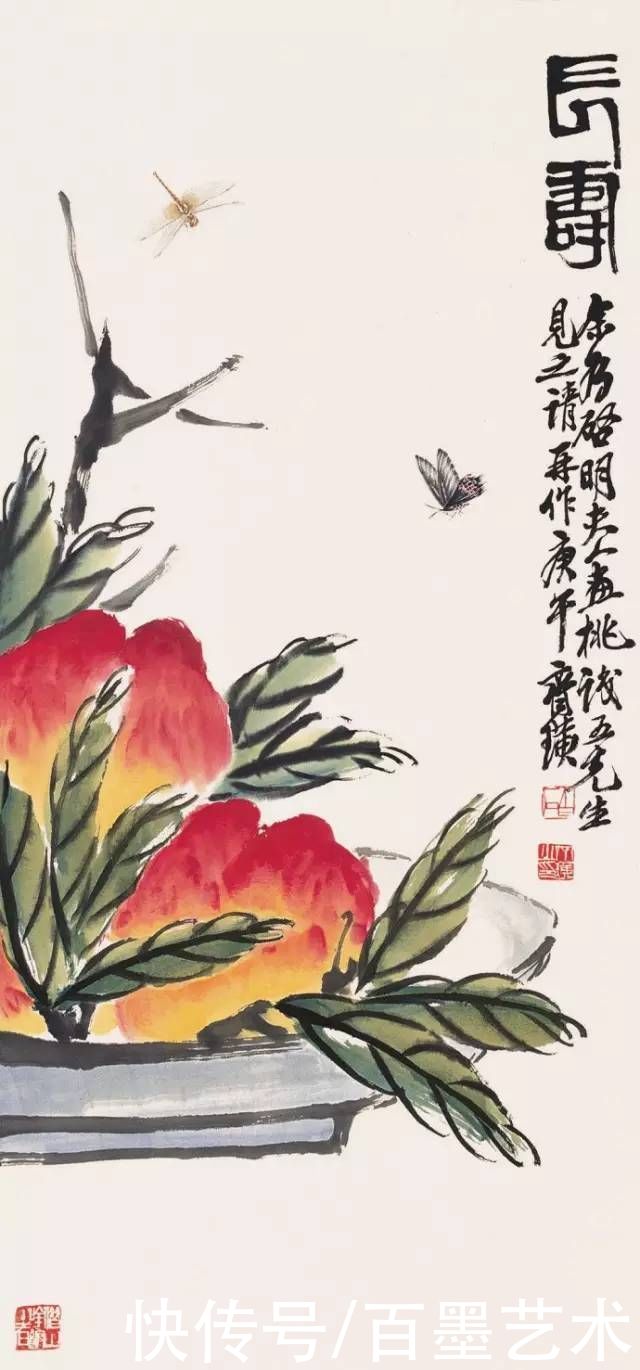 長壽
余为啟明夫人畫桃識五先生
見之請再作庚午齊璜
快传号/百墨艺术